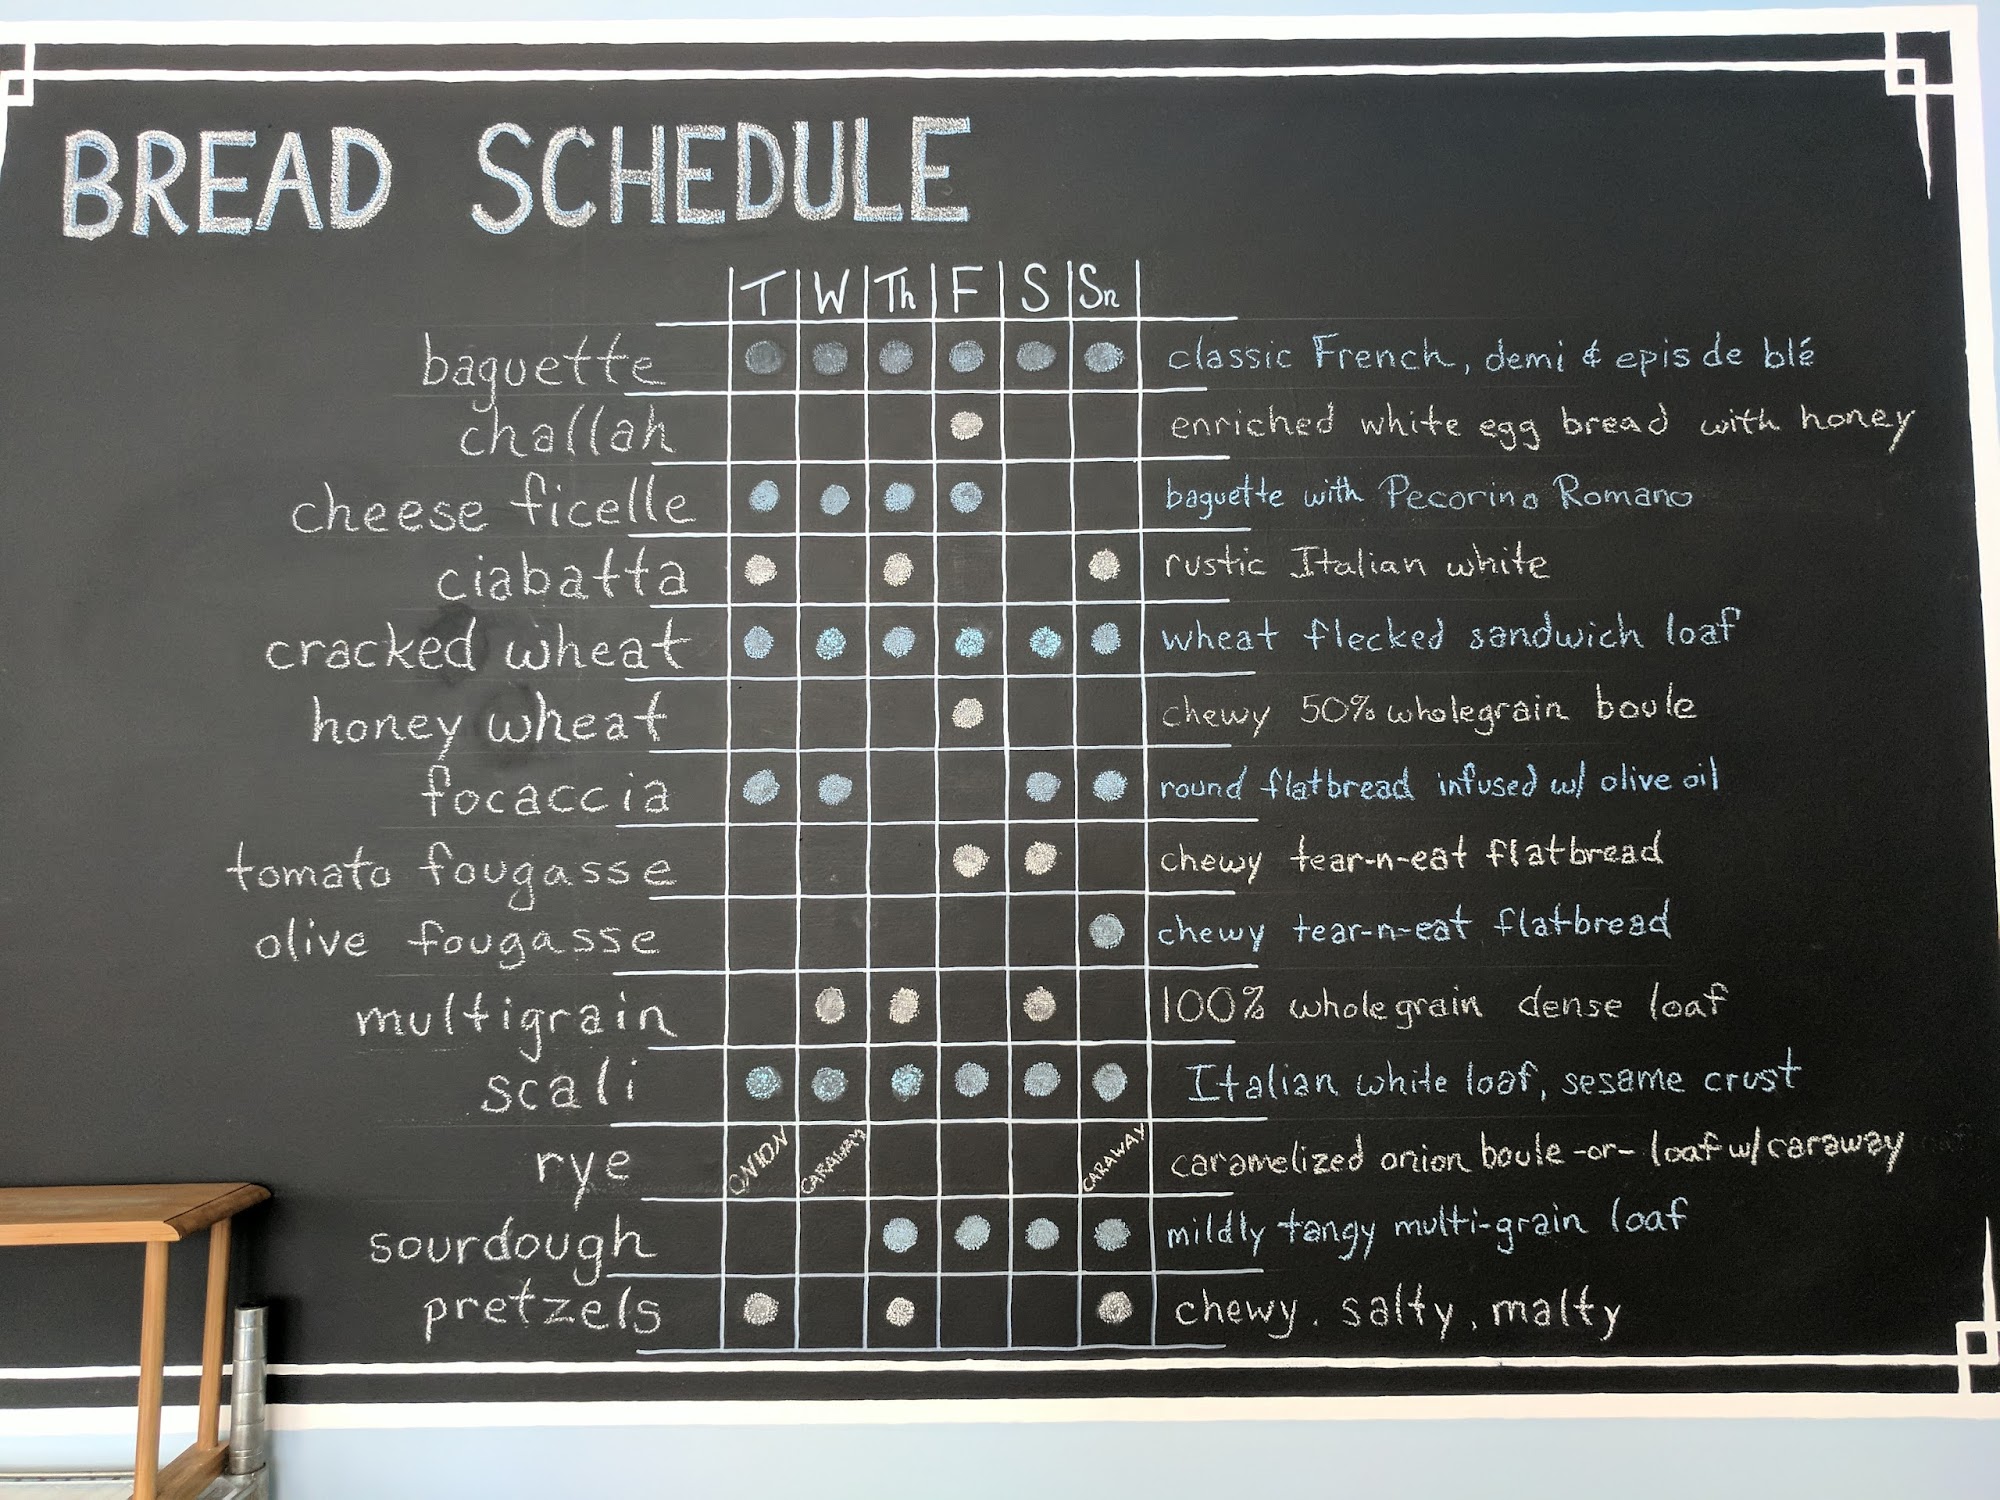 BREAD SCHEDULE
T W Th F S Sn
baguette classic French, demi & epis de blé
challah enriched white egg bread with honey
cheese ficelle baguette with Pecorino Romano
ciabatta rustic Italian white
cracked wheat wheat flecked sandwich loaf
honey wheat chewy 50% wholegrain boule
focaccia round flatbread infused w/ olive oil
tomato fougasse chewy tear-n-eat flatbread
olive fougasse chewy tear-n-eat flatbread
multigrain 100% whole grain dense loaf
scali Italian white loaf, sesame crust
rye ONION CARAWAY CARAWAY caramelized onion boule -or- loaf w/ caraway
sourdough mildly tangy multi-grain loaf
pretzels chewy, salty, malty